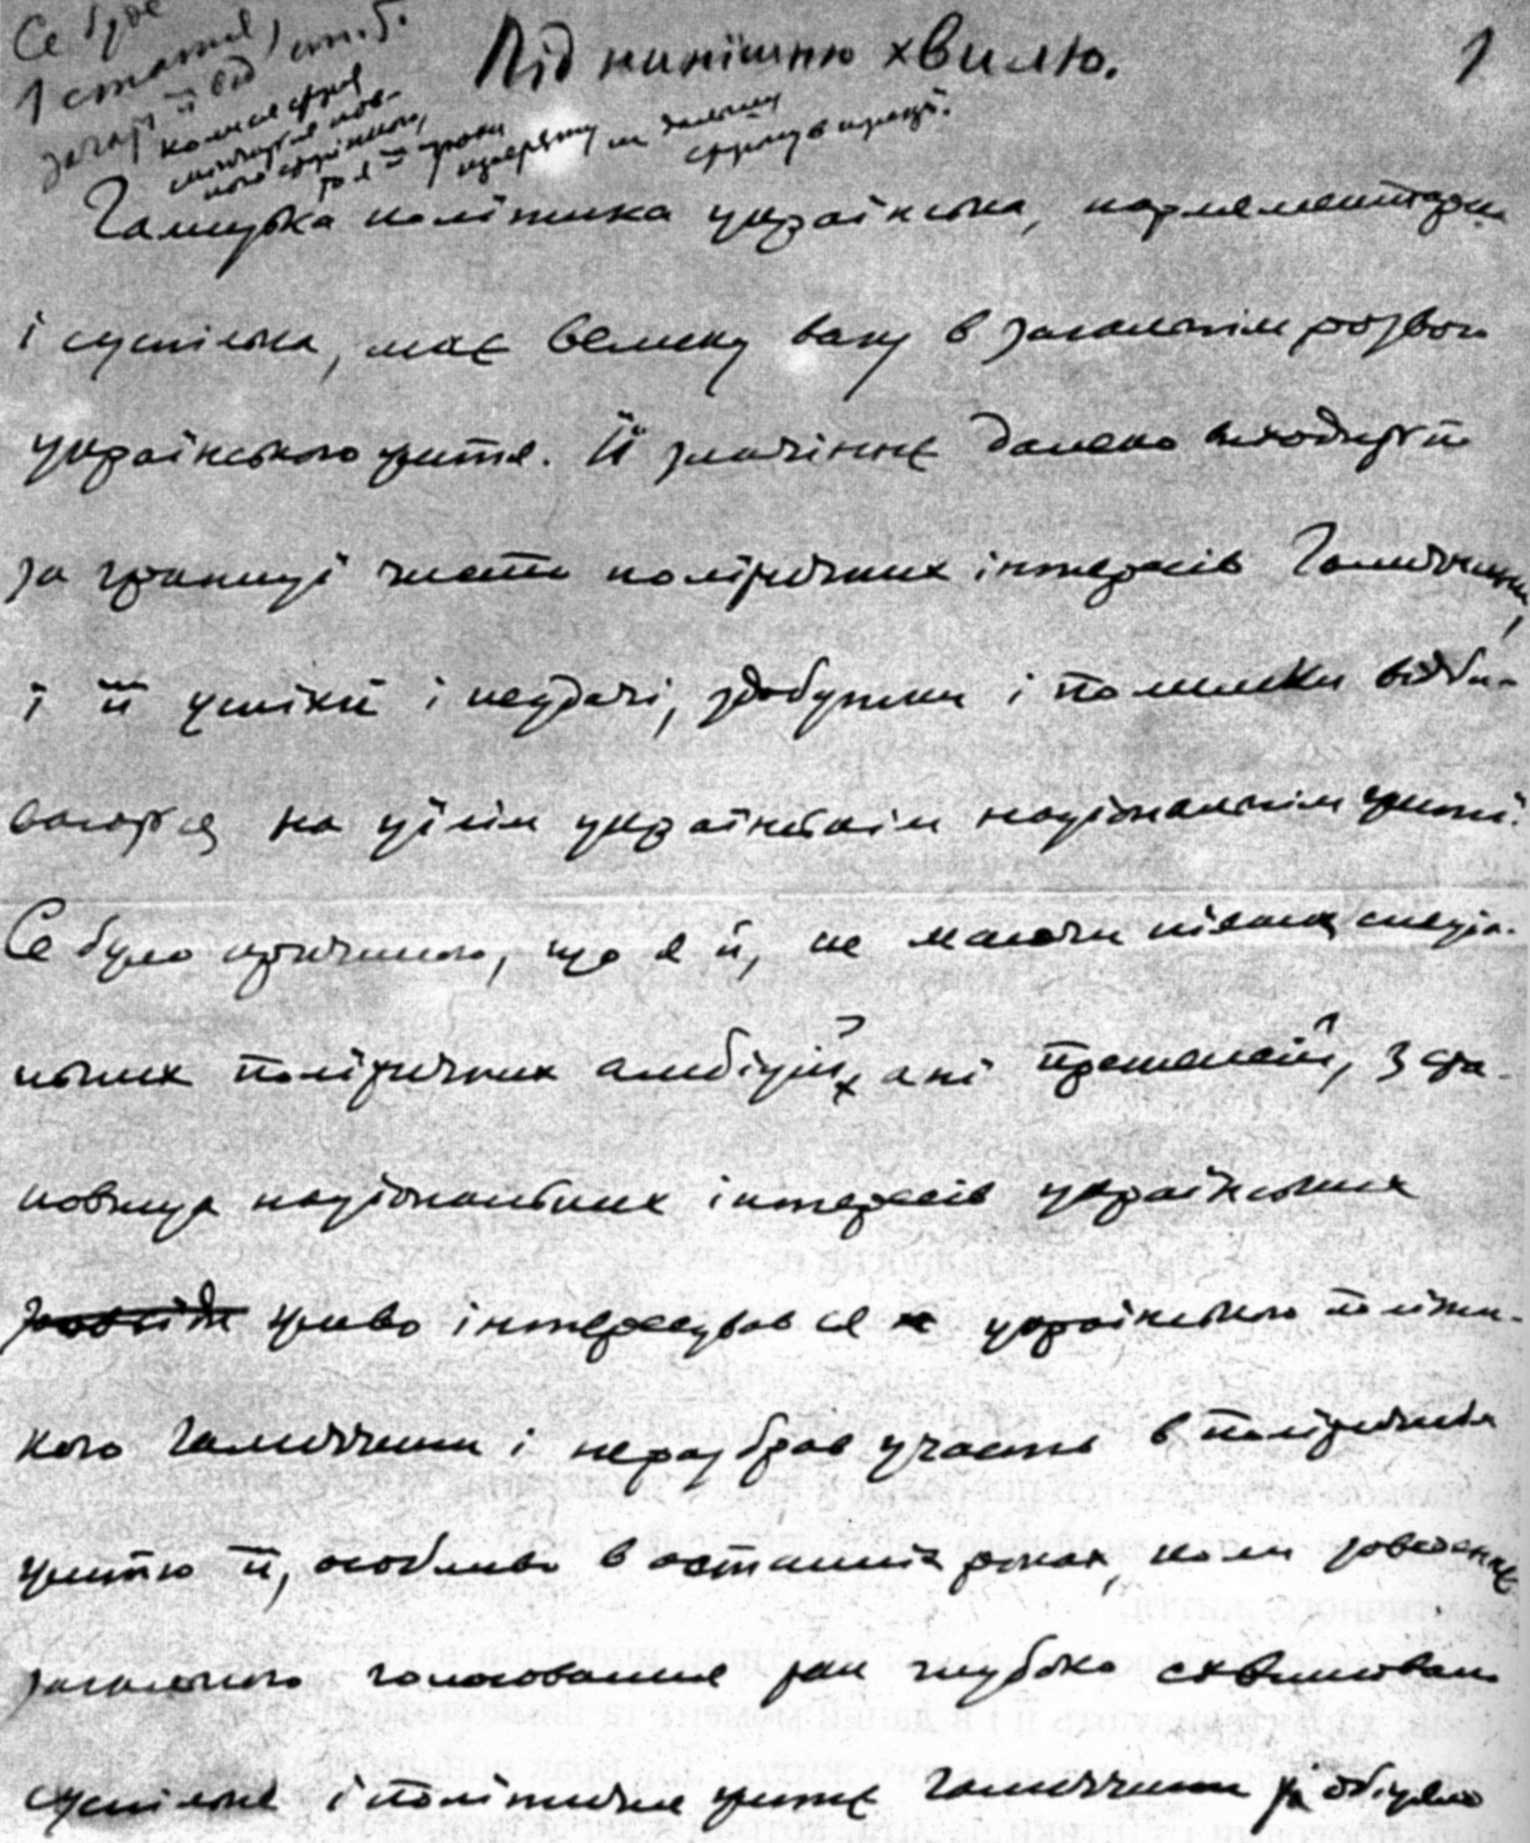 Се буде
1 стаття,
Під нинїшню хвилю.
1
Галицька полїтика українська, парляментарна
і суспільна, має велику вагу в загальнім розвою
українського житя. Її значіннє далеко виходить
за границі чисто полїтичних інтересів Галичини,
і її успіхи і неудачі, здобутки і помилки відби-
вають ся на цїлім українськім національнім житі.
Се було причиною, що я й, не маючи ніяких спеціа-
льних полїтичних амбіцій, ані претенсій, з ста-
новища національних інтересів українських
живо інтересував ся українською полїти-
кою Галичини і нераз брав участь в полїтичнім
житю її, особливо в останнїх роках, коли заведеннє
загального голосованя так глубоко схвилювало
суспільне і полїтичне житє Галичини й обіцяло